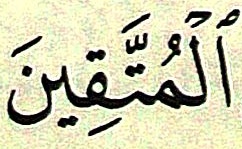 ٱلۡمُتَّقِينَ